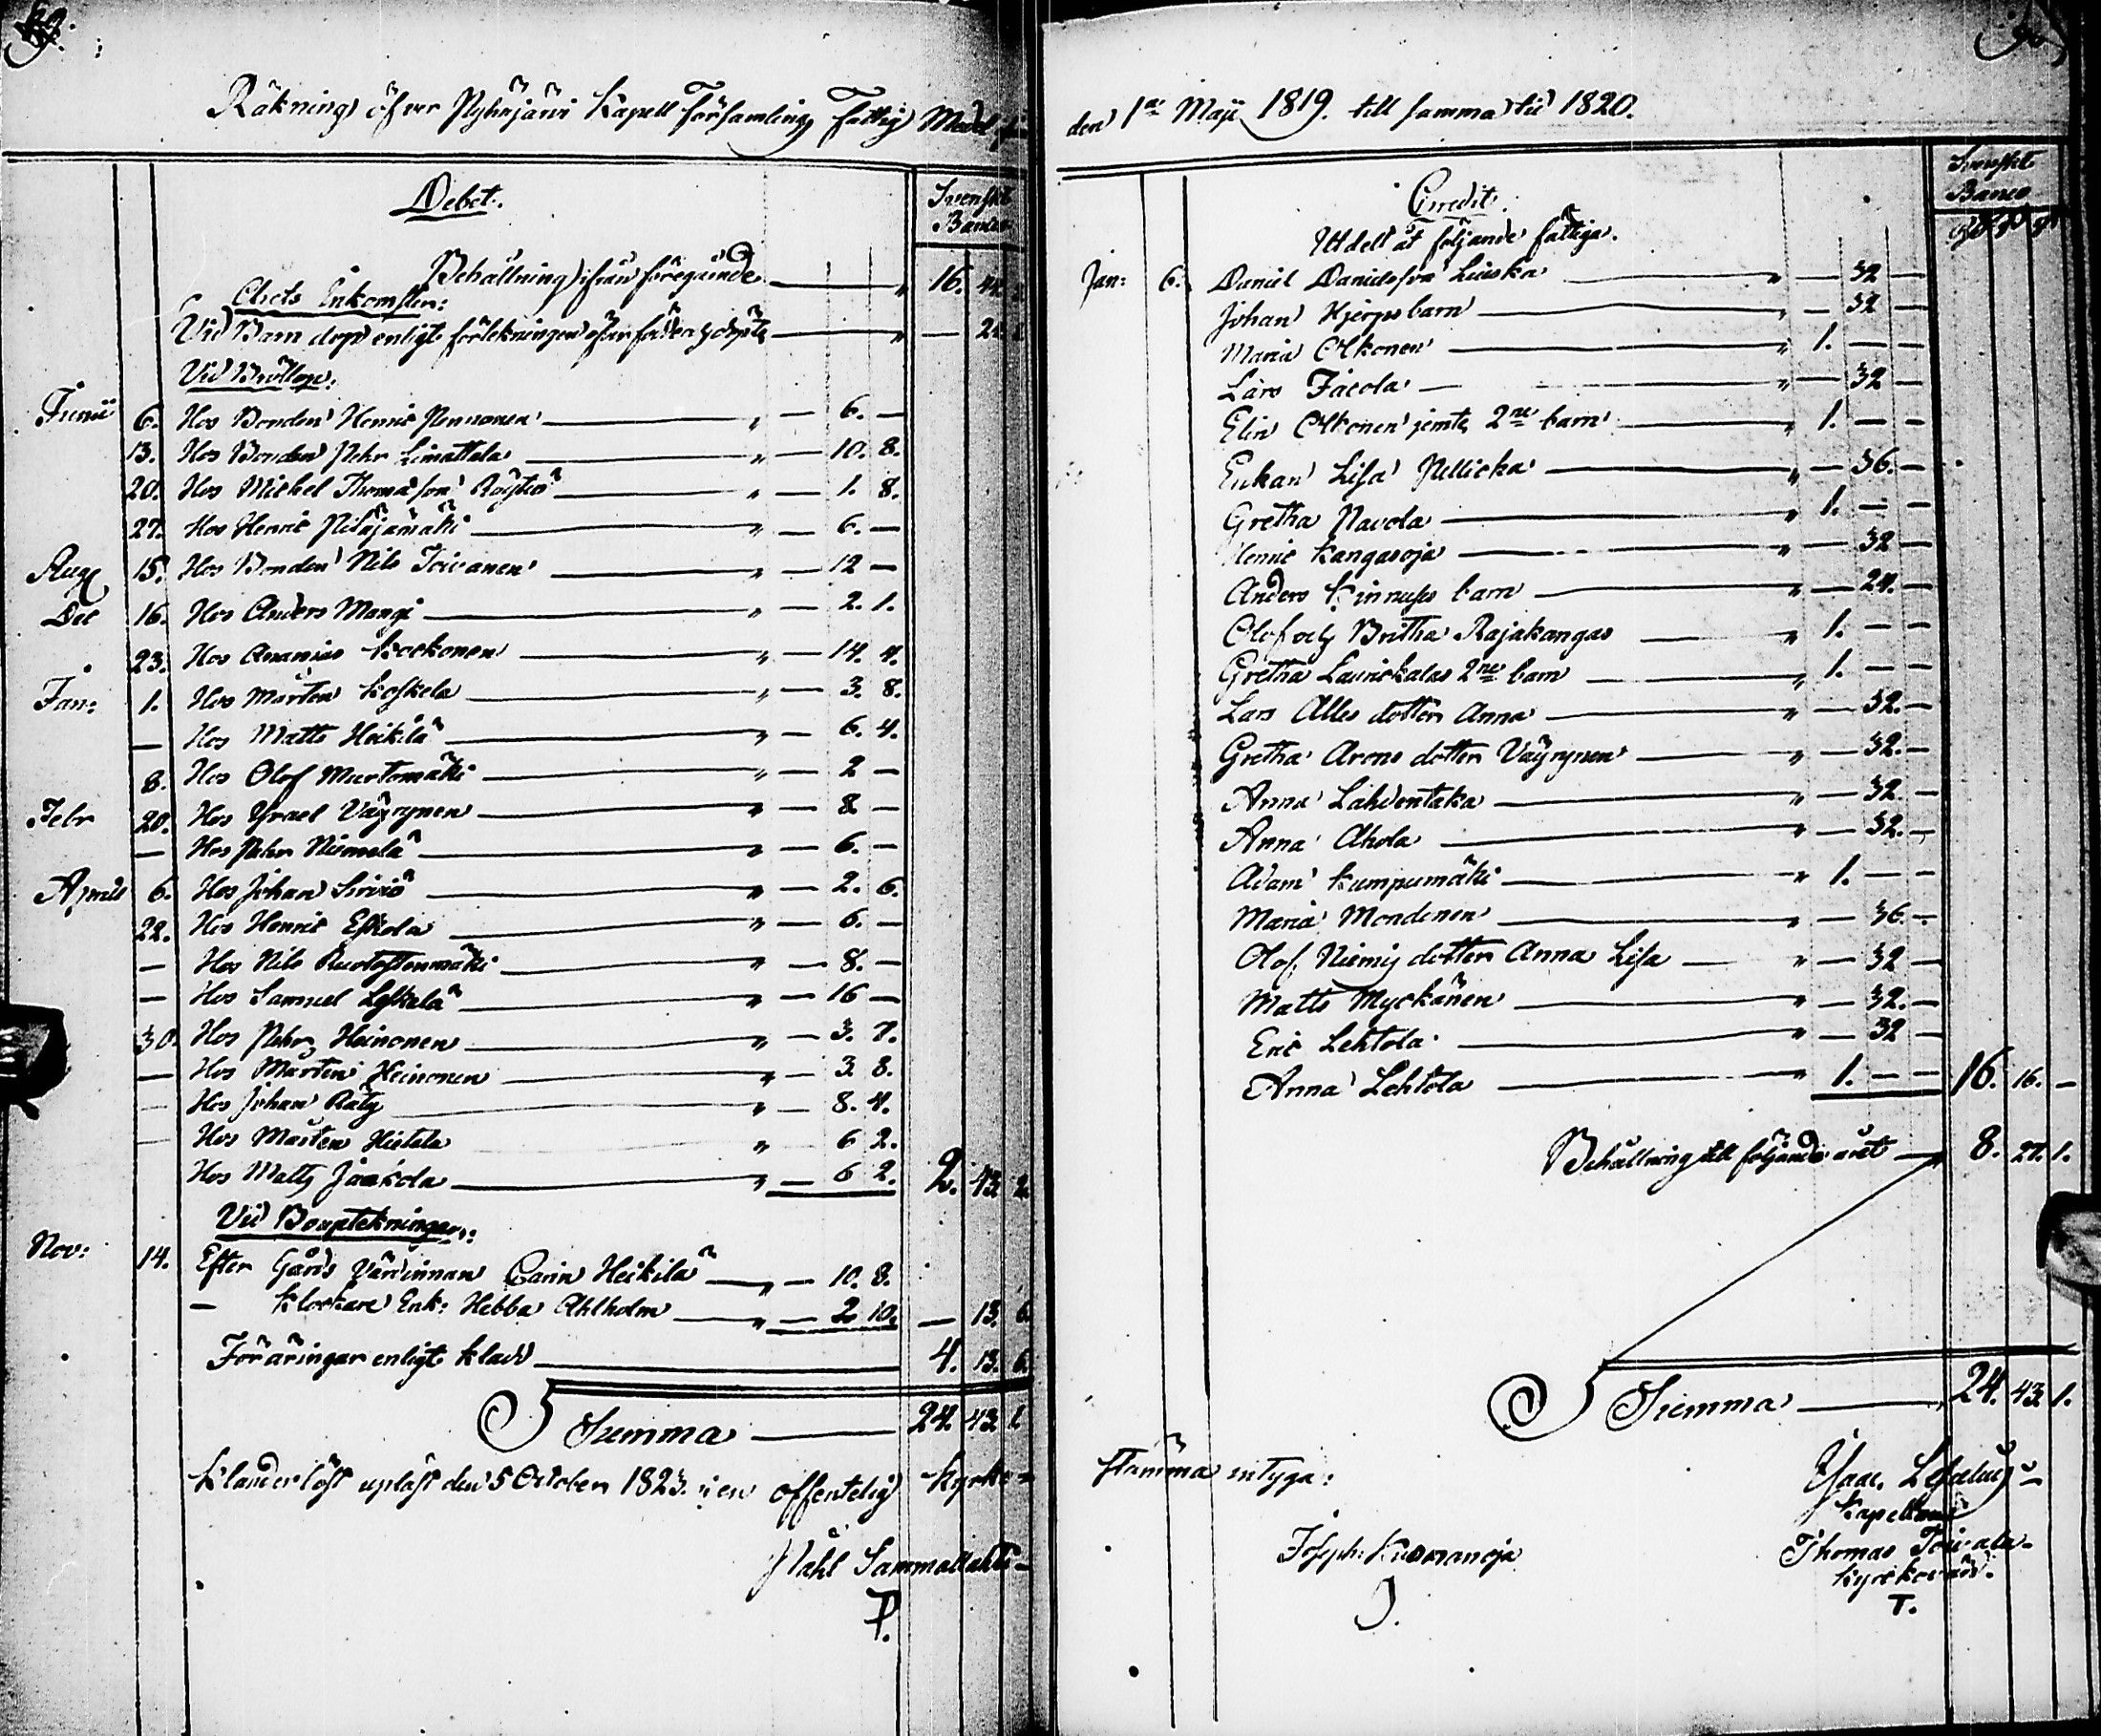 Räkning öfver Pyhäjärvi Kapell Församlings Fattig Medel
den 1ae Maji 1819. till samma tid 1820.
Debet.
Svenskt Banco
Behållning ifrån föregående " 16. 44.
Årets Inkomster:
Vid Barn dop enligt förtekningen öfver födde och döpte " — 24.
Vid Bröllop:
Junii 6. Hos Bonden Henric Pennanen " — 6. —
13. Hos Bonden Pehr Limattala " — 10. 8.
20. Hos Michel Thomasson Röytiö " — 1. 8.
27. Hos Henric Pitäjämäki " — 6. —
Aug 15. Hos Bonden Nils Toivanen " — 12 —
Dec 16. Hos Anders Mangi " — 2. 1.
23. Hos Ananias Kockonen " — 14. 4.
Jan: 1. Hos Mårten Koskela " — 3. 8.
— Hos Matts Heikilä " — 6. 4.
8. Hos Olof Murtomäki " — 2 —
Febr 20. Hos Ysrael Väyrynen " — 8 —
— Hos Pehr Niemelä " — 6. —
Aprill 6. Hos Johan Sirviö " — 2. 6.
22. Hos Henric Eskola " — 6. —
— Hos Nils Ruotoistenmäki " — 8. —
— Hos Samuel Leskelä " — 16 —
30. Hos Pehr Heinonen " — 3. 7.
— Hos Mårten Heinonen " — 3 8.
— Hos Johan Räty " — 8. 4.
— Hos Mårten Hietala " — 6 2.
Hos Matts Jaakola " — 6 2. 2. 43 2
Vid Bouptekningar:
Nov: 14. Efter Gårds Värdinnan Carin Heikilä " — 10. 8.
— Klockare Enk: Hebba Ahlholm " — 2 10. — 13. 6
Föräringar enligt klad 4. 13. 6.
Summa 24. 43 1
Klanderlöst upläst den 5 October 1823. i en offentelig Kyrko-
Påhl Sammallahti
P.
Credit.
Svenskt Banco
Utdelt åt följande fattiga.
Jan: 6. Daniel Danielsson Liuska " — 32 —
Johan Hjerpes barn " — 32 —
Maria Olkonen " 1. — —
Lars Jacola " — 32 —
Elin Olkonen jemte 2ne barn " 1. — —
Enkan Lisa Pellicka " — 36. —
Gretha Navola " 1. — —
Henric Kangasoja " — 32 —
Anders Kinnuses barn " — 24. —
Olof och Britha Rajakangas " 1. — —
Gretha Laurickalas 2ne barn " 1. — —
Lars Alles dotter Anna " — 32. —
Gretha Arons dotter Väyrynen " — 32. —
Anna Lahdentaka " — 32 —
Anna Ahola " — 32. —
Adam Kumpumäki " 1. — —
Maria Mondinen " — 36. —
Olof Niemis dotter Anna Lisa " — 32 —
Matts Myckänen " — 32. —
Eric Lehtola " — 32 —
Anna Lehtola " 1. — — 16. 16. —
Behållning till följande året " 8. 27. 1.
Summa 24. 43 1.
stämma intyga:
Kapellan
Joseph Kuomanoja
J.
Thomas
Kyrkovärd.
T.